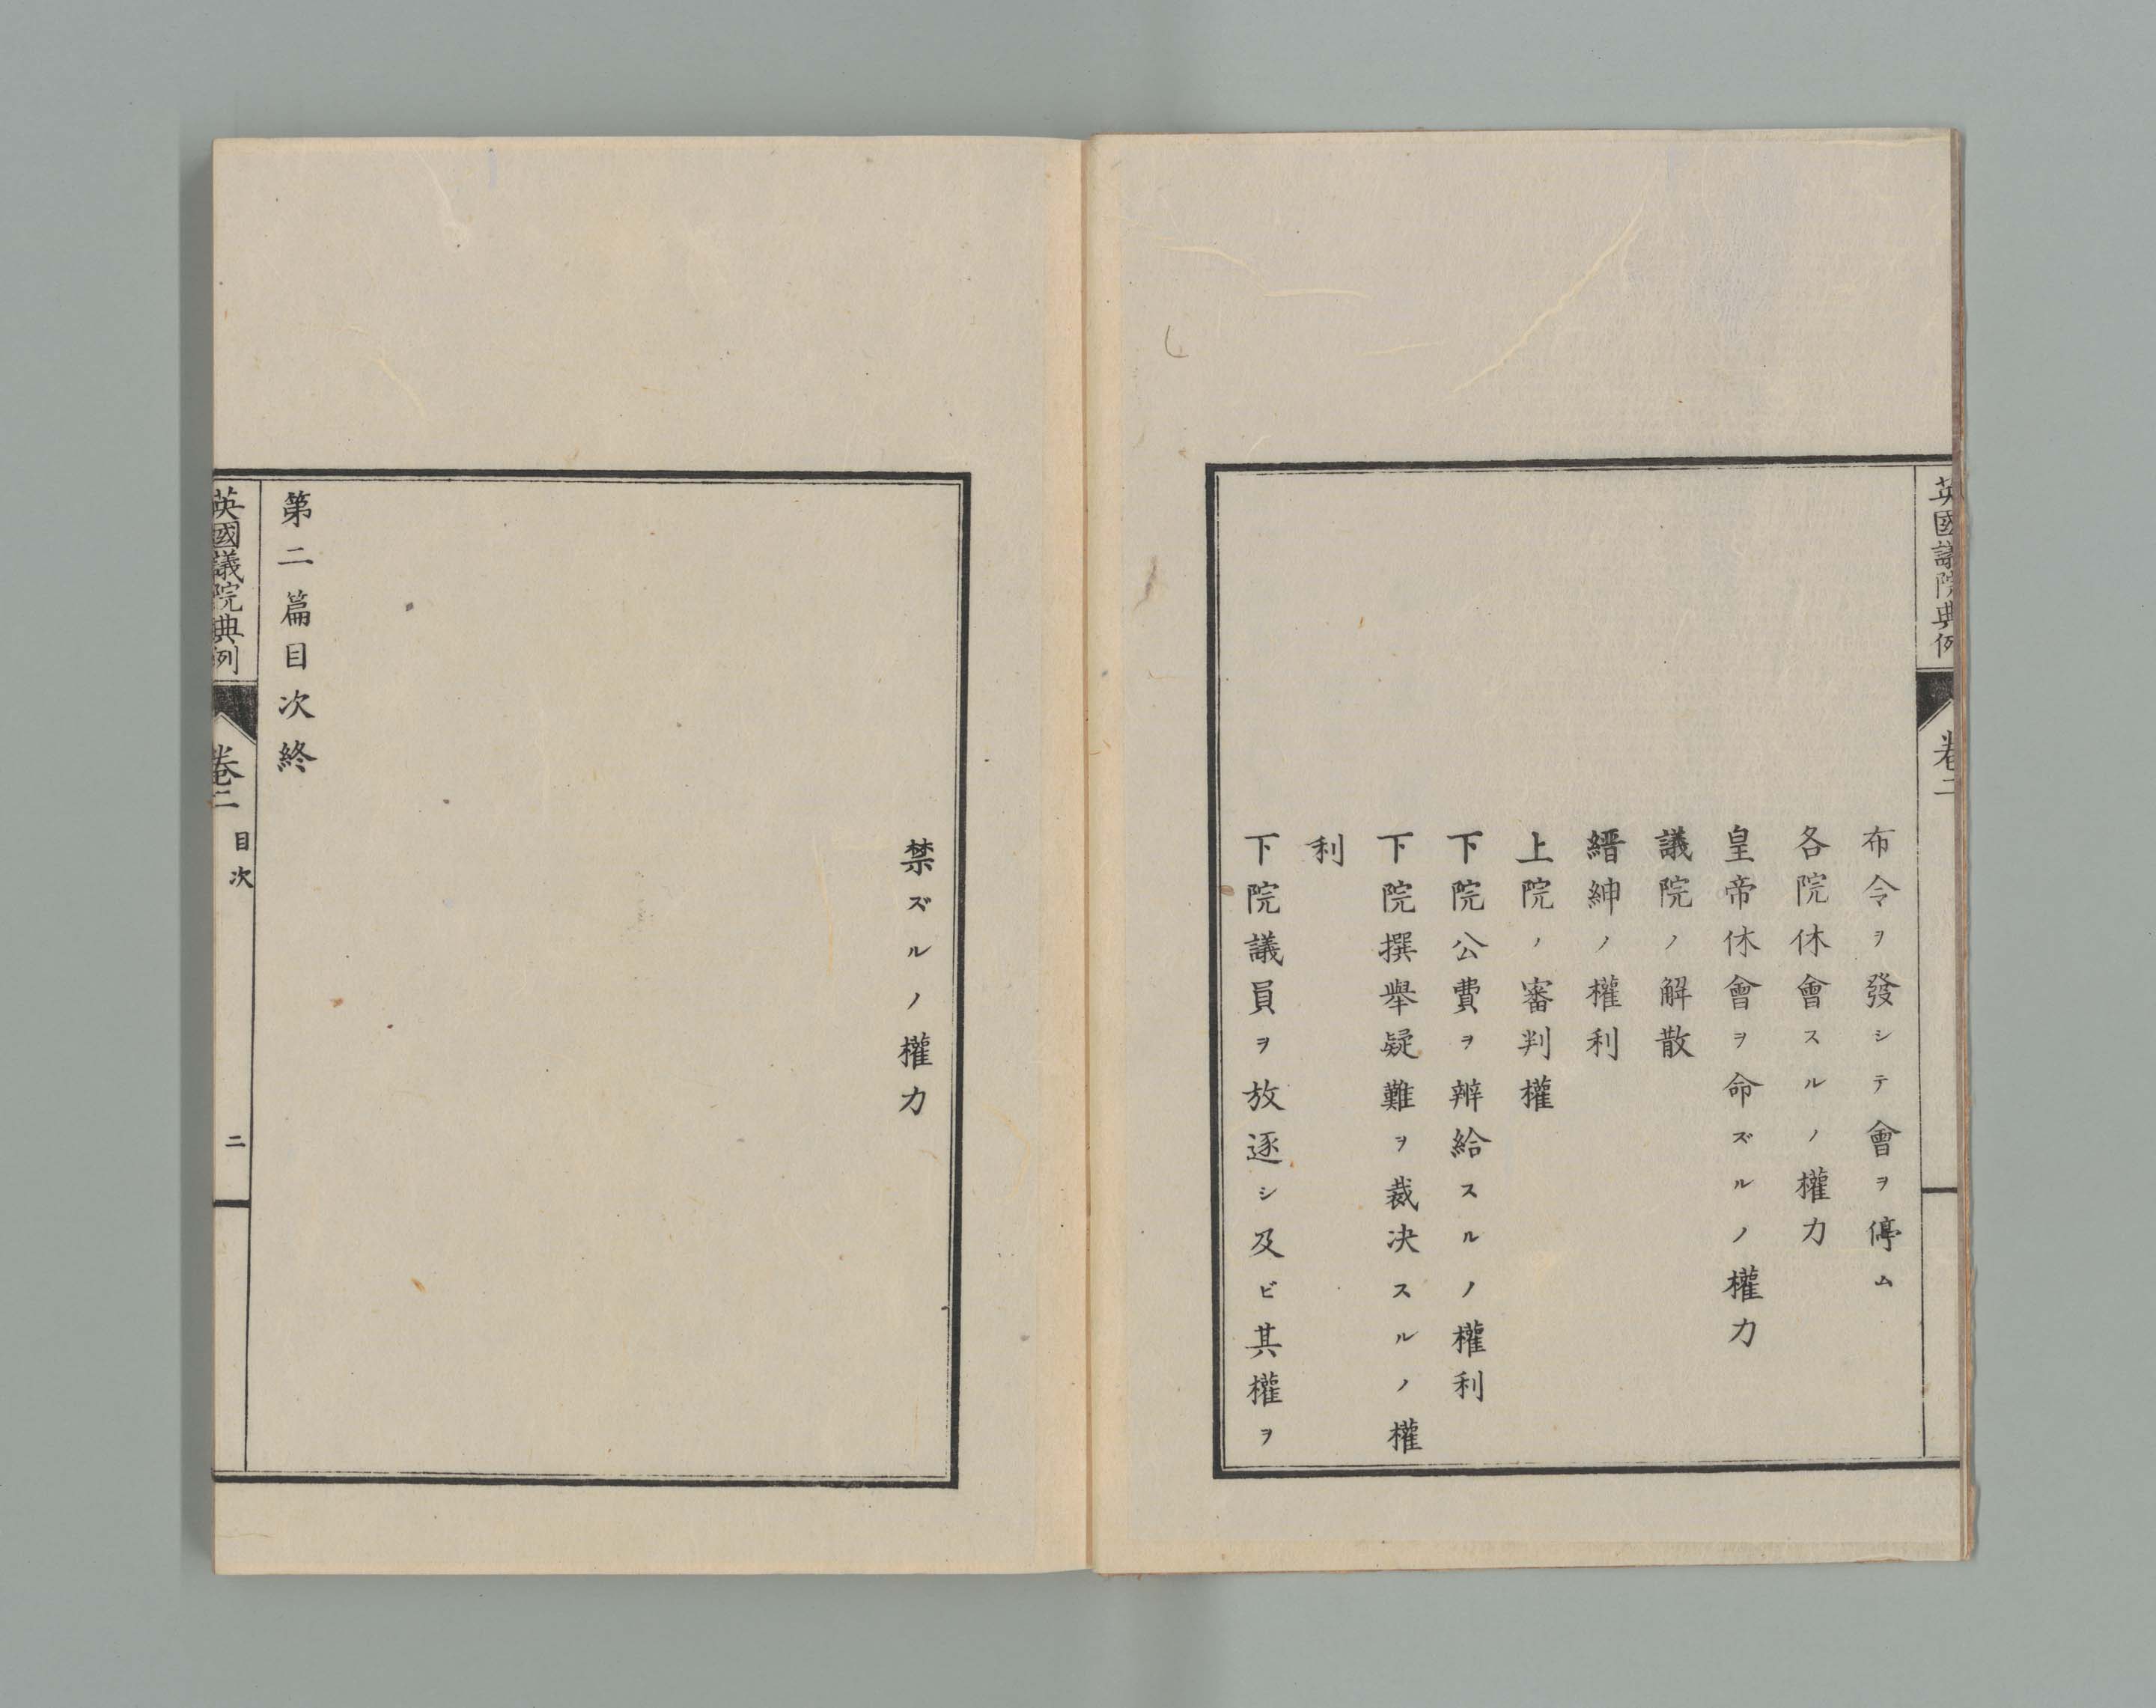 英國議院典例
卷二
布令ヲ發シテ會ヲ停ム
各院休會スルノ權力
皇帝休會ヲ命ズルノ權力
議院ノ解散
縉紳ノ權利
上院ノ審判權
下院公費ヲ辨給スルノ權利
下院撰舉疑難ヲ裁决スルノ權
利
下院議員ヲ放逐シ及ビ其權ヲ
禁ズルノ權力
第二篇目次終
英國議院典例
卷二
目次
二